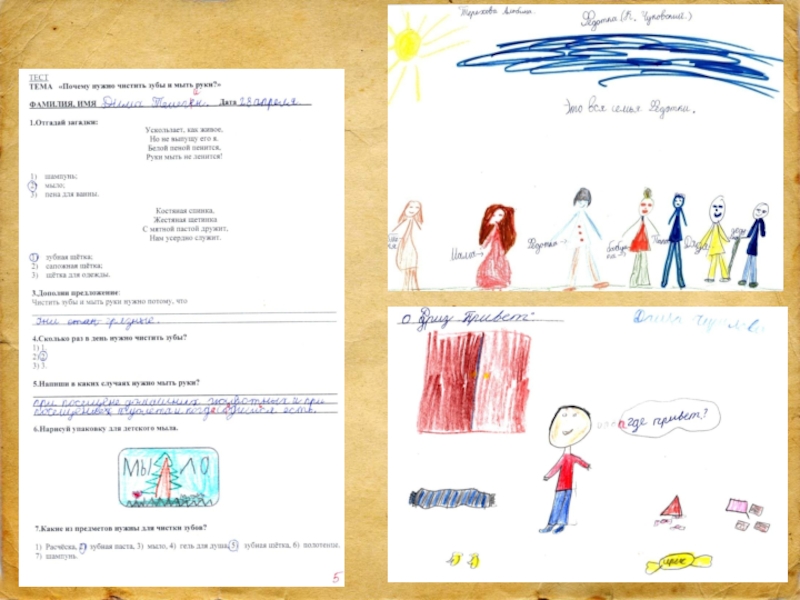 ТЕСТ
ТЕМА «Почему нужно чистить зубы и мыть руки?»
ФАМИЛИЯ, ИМЯ Дата 23 апреля
1.Отгадай загадки:
Ускользает, как живое,
Но не выпущу его я.
Белой пеной пенится,
Руки мыть не ленится!
1) шампунь;
2) мыло;
3) пена для ванны.
Костяная спинка,
Жестяная щетинка
С мятной пастой дружит,
Нам усердно служит.
1) зубная щётка;
2) сапожная щётка;
3) щётка для одежды.
3.Дополни предложение:
Чистить зубы и мыть руки нужно потому, что
они стан грязные.
4.Сколько раз в день нужно чистить зубы?
1) 1.
2) 2
3) 3.
5.Напиши в каких случаях нужно мыть руки?
при посещене домашних животных и при
посещениех туолета и когда садимся есть.
6.Нарисуй упаковку для детского мыла.
МЫЛО
7.Какие из предметов нужны для чистки зубов?
1) Расчёска, 2) зубная паста, 3) мыло, 4) гель для душа, 5) зубная щётка, 6) полотенце,
7) шампунь.
5
Терехова
Федотка (К. Чуковский)
Это вся семья Федотки.
Мама
Федотка
бабуш-
ка
Папа
Дядя
деда
О. Дриз "Привет"
Даша
где привет?
ирис